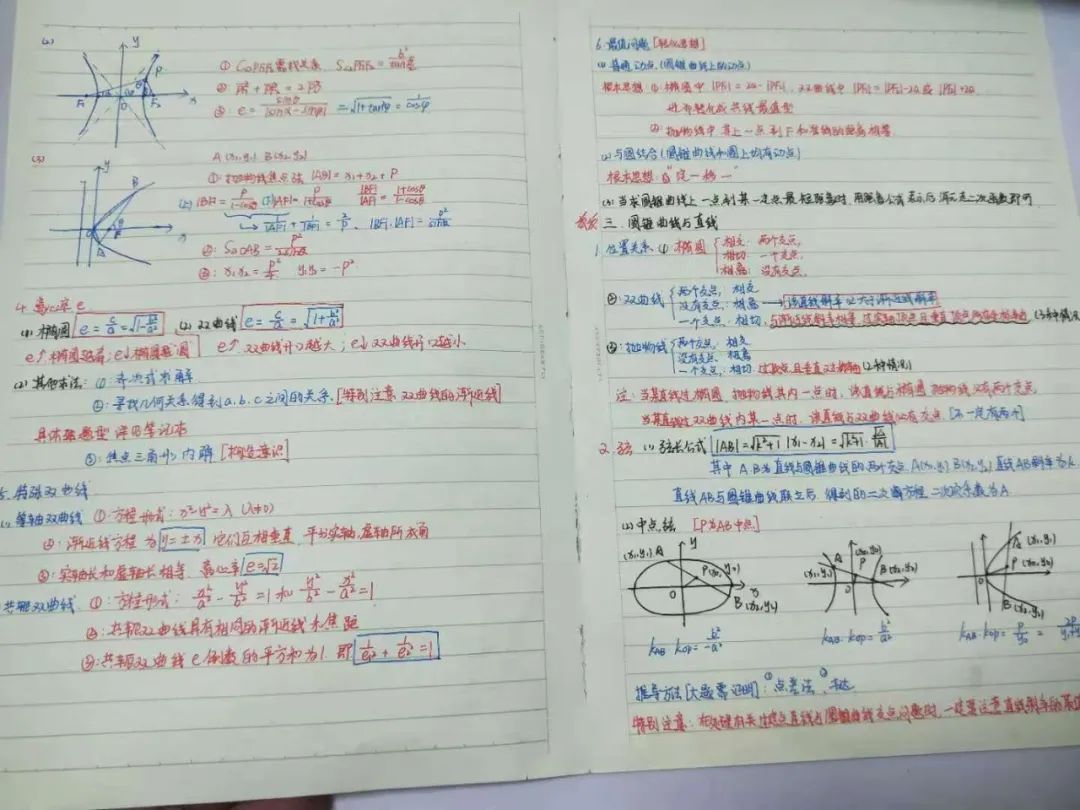 (2)
y
P
F₁ O F₂ x
① C△PF₁F₂ 需找关系 S△PF₁F₂ =
②
③ e = = √1+tan²φ = 1/cosφ
(3)
y
B
F
A
A(x₁,y₁) B(x₂,y₂)
①: 抛物线焦点弦 |AB| = x₁+x₂+P
② |BF| = P/1-cosθ |AF| = P/1+cosθ |BF|/|AF| = 1+cosθ/1-cosθ
1/|AF| + 1/|BF| = 2/P, |BF|·|AF| = P²/sin²θ
③: S△OAB = P²/2sinθ
④: x₁x₂ = P²/4 y₁y₂ = -P²
4. 离心率 e
(1) 椭圆 e = c/a = √1-b²/a² (2) 双曲线 e = c/a = √1+b²/a²
e↑ 椭圆越扁; e↓ 椭圆越圆 e↑ 双曲线开口越大; e↓ 双曲线开口越小
(2) 其他求法: ① 齐次式求解
②: 寻找几何关系得到 a、b、c 之间的关系 [特别注意 双曲线的渐近线]
具体题型 详田笔记本
③: 焦点三角形内解 [构造意识]
5. 特殊双曲线
(1) 等轴双曲线 ① 方程形式: x²-y²=λ (λ≠0)
②: 渐近线方程为 y=±x 它们互相垂直 平分实轴,虚轴所成角
③: 实轴长和虚轴长相等, 离心率 e=√2
共轭双曲线 ①: 方程形式: x²/a² - y²/b² = 1 和 y²/b² - x²/a² = 1
②: 共轭双曲线具有相同的渐近线和焦距
③: 共轭双曲线 e 倒数的平方和为1 即 1/e₁² + 1/e₂² = 1
6. 最值问题 [转化思想]
(1) 普通动点 (圆锥曲线上的动点)
根本思想: ① 椭圆中 |PF₁| = 2a-|PF₂|, 双曲线中 |PF₁| = |PF₂|-2a 或 |PF₂|+2a
进而转化成共线最值型
② 抛物线中 其上一点到F和准线的距离相等
(2) 与圆结合 (圆锥曲线和圆上均有动点)
根本思想 "定一移一"
(3) 当求圆锥曲线上一点到某一定点最短距离时, 用距离公式表示后 消元走二次函数即可
三. 圆锥曲线与直线
1. 位置关系 ① 椭圆 相交: 两个交点,
相切: 一个交点,
相离: 没有交点.
②: 双曲线 两个交点, 相交
没有交点, 相离 → 该直线斜率
一个交点: 相切, 与渐近线斜率相等, (3种情况
③: 抛物线 两个交点, 相交
没有交点, 相离
一个交点, 相切, (2种情况)
注: 当某直线过椭圆, 抛物线其内一点时, 该直线与椭圆 抛物线必有两个交点
当某直线过双曲线内某一点时, 该直线与双曲线必有交点 [不一定有两个]
2. 弦 (1) 弦长公式 |AB| = √k²+1 |x₁-x₂| = √k²+1 · √Δ/|A|
其中 A、B为直线与圆锥曲线的两个交点 A(x₁,y₁) B(x₂,y₂) 直线AB斜率为k.
直线AB与圆锥曲线联立后, 得到的二次方程 二次项系数为A
(2) 中点弦 [P为AB中点]
(x₁,y₁) A y P(x₀,y₀) O x B(x₂,y₂)
(x₁,y₁) A (x₀,y₀) P B(x₂,y₂) O
A (x₁,y₁) P(x₀,y₀) O B(x₂,y₂)
kAB·kOP = -b²/a² kAB·kOP = b²/a² kAB·kOP = P/y₀ =
推导方法 [大题需证明]: ① 点差法 ② 韦达
特别注意: 在处理有关过定点直线与圆锥曲线交点问题时, 一定要注意直线斜率的